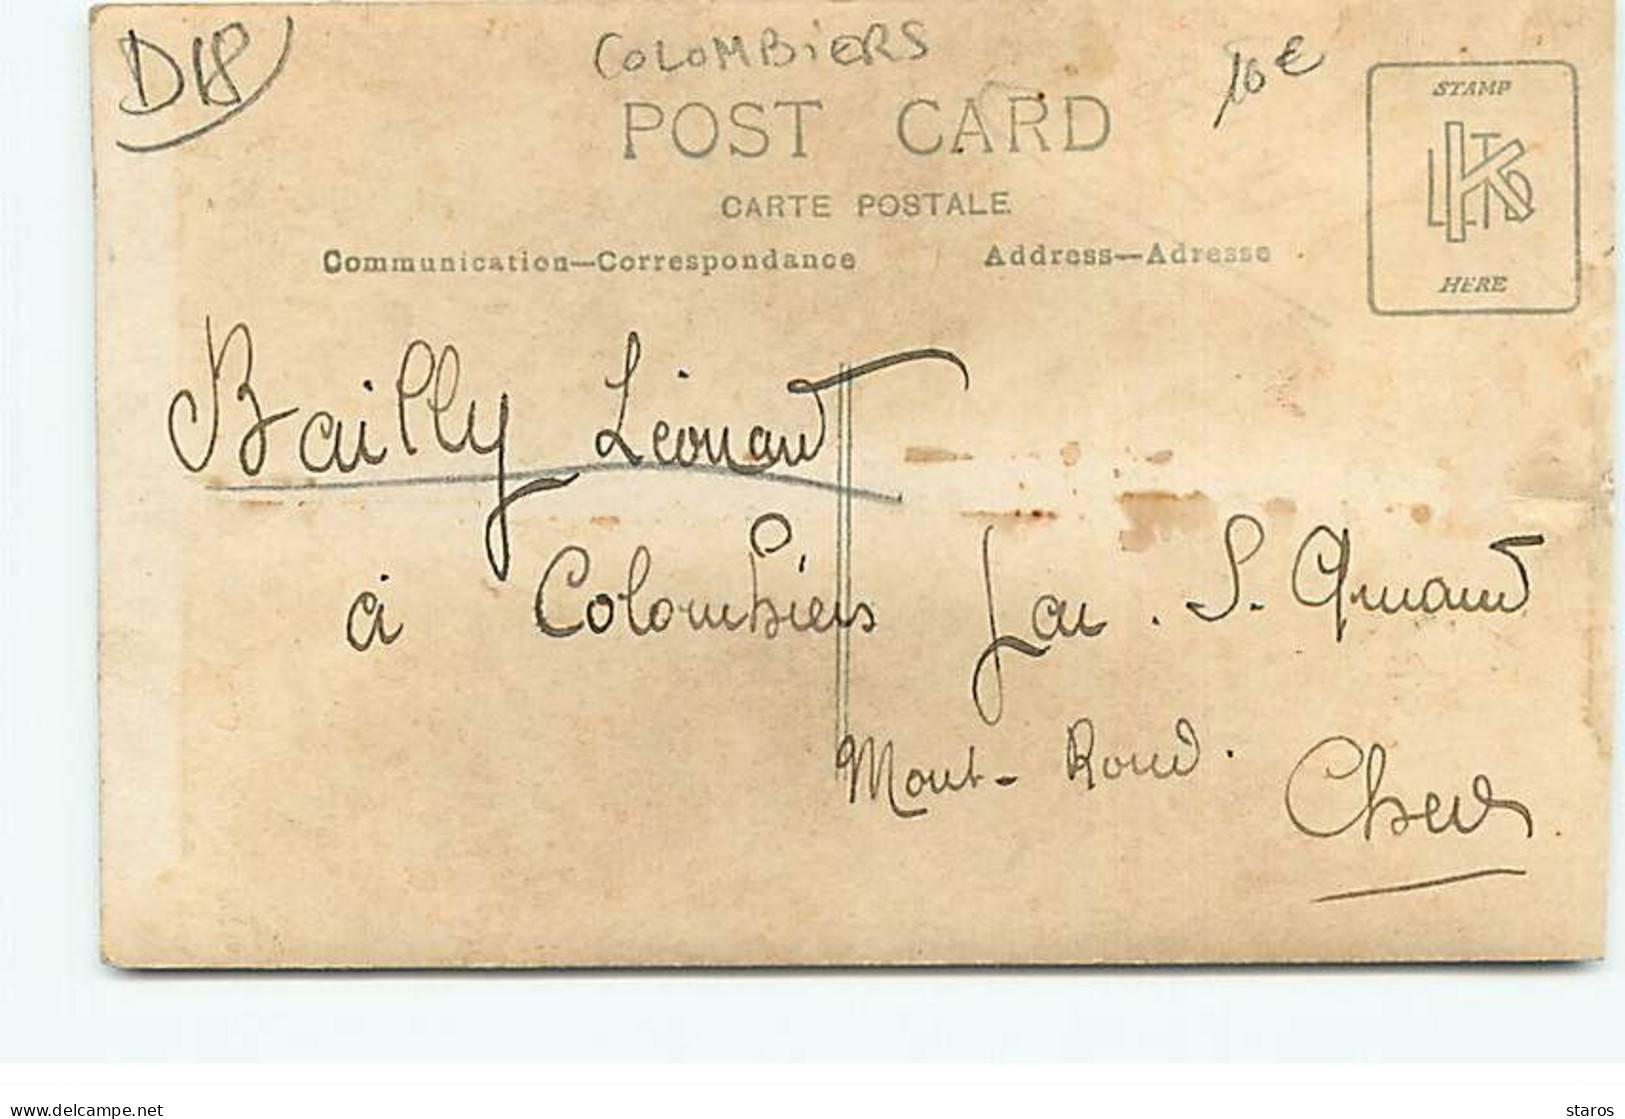 D18
COLOMBIERS
10 €
POST CARD
CARTE POSTALE
Communication—Correspondance
Address—Adresse
STAMP
K LTD
HERE
Bailly Léonard
à Colombiers par. S. Amand
Mont-Rond.
Cher.
delcampe.net
staros